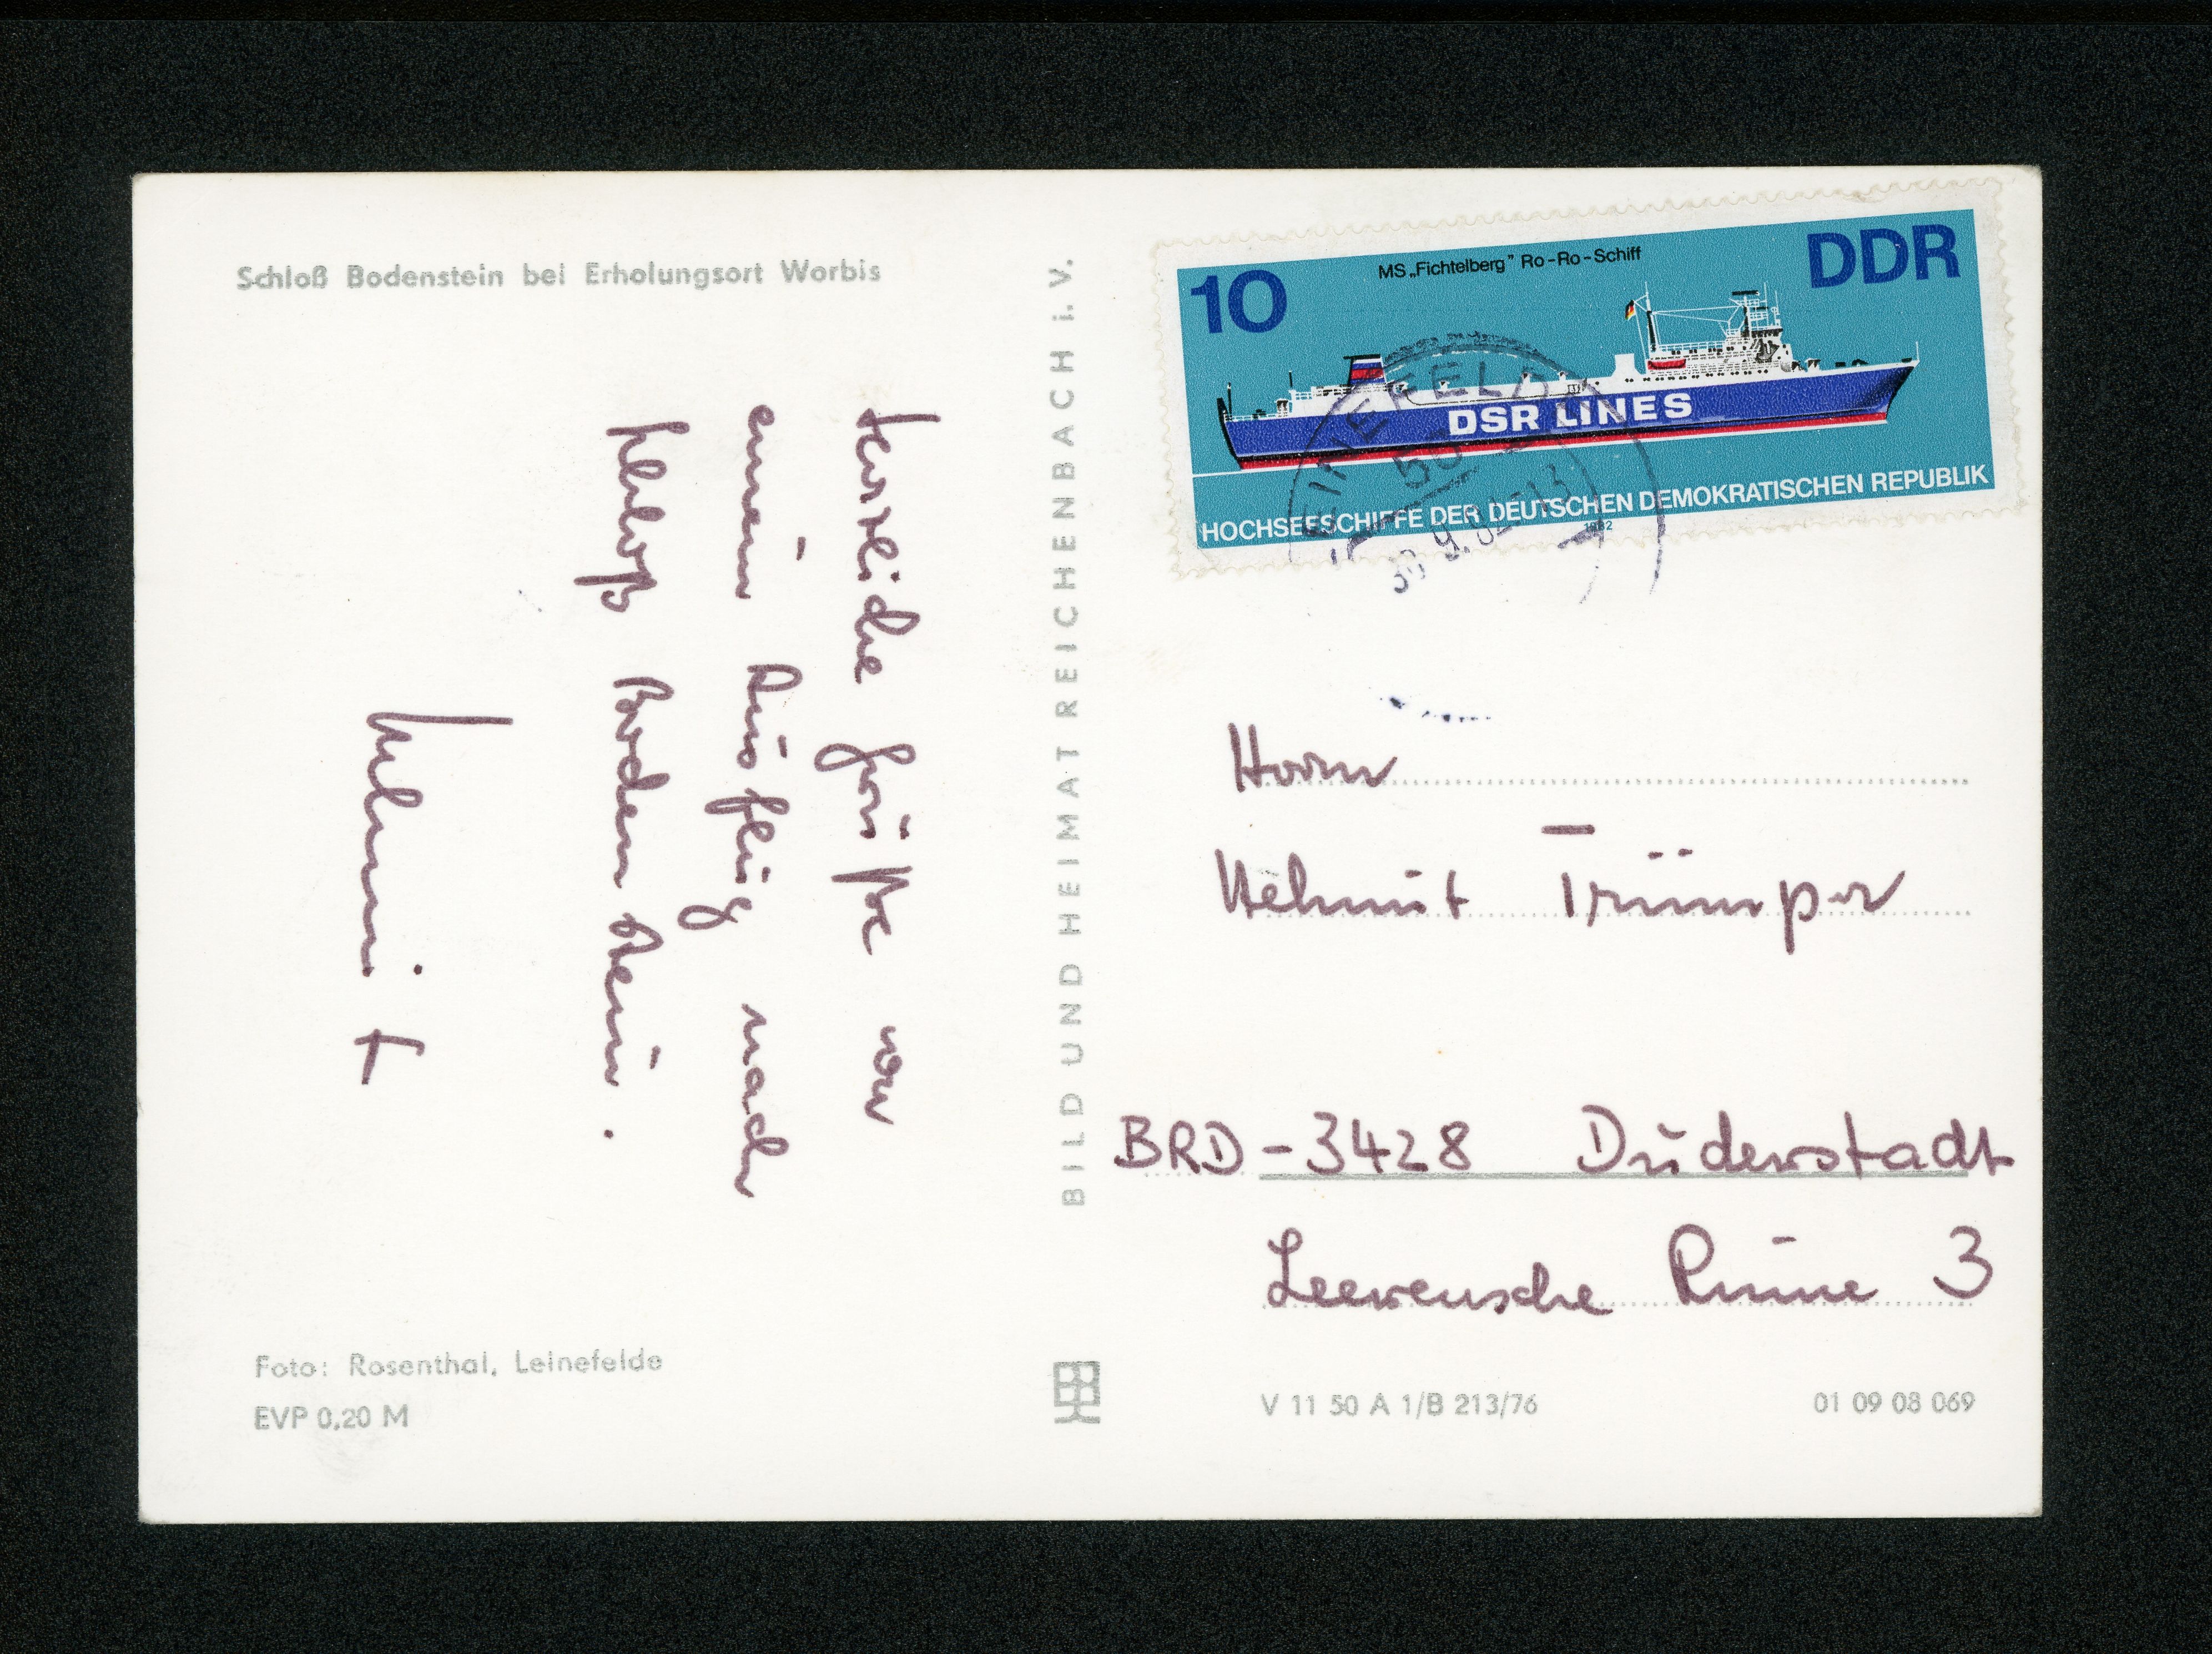 Schloß Bodenstein bei Erholungsort Worbis
Herzliche Grüße von
einem Ausflug nach
Schloß Bodenstein.
Helmut
Foto: Rosenthal, Leinefelde
EVP 0,20 M
BILD UND HEIMAT REICHENBACH i. V.
10
MS „Fichtelberg" Ro-Ro-Schiff
DDR
DSR LINES
HOCHSEESCHIFFE DER DEUTSCHEN DEMOKRATISCHEN REPUBLIK
1982
LEINEFELDE
30.9.82-13
Herrn
Helmut Trümper
BRD-3428 Duderstadt
3
V 11 50 A 1/B 213/76
01 09 08 069